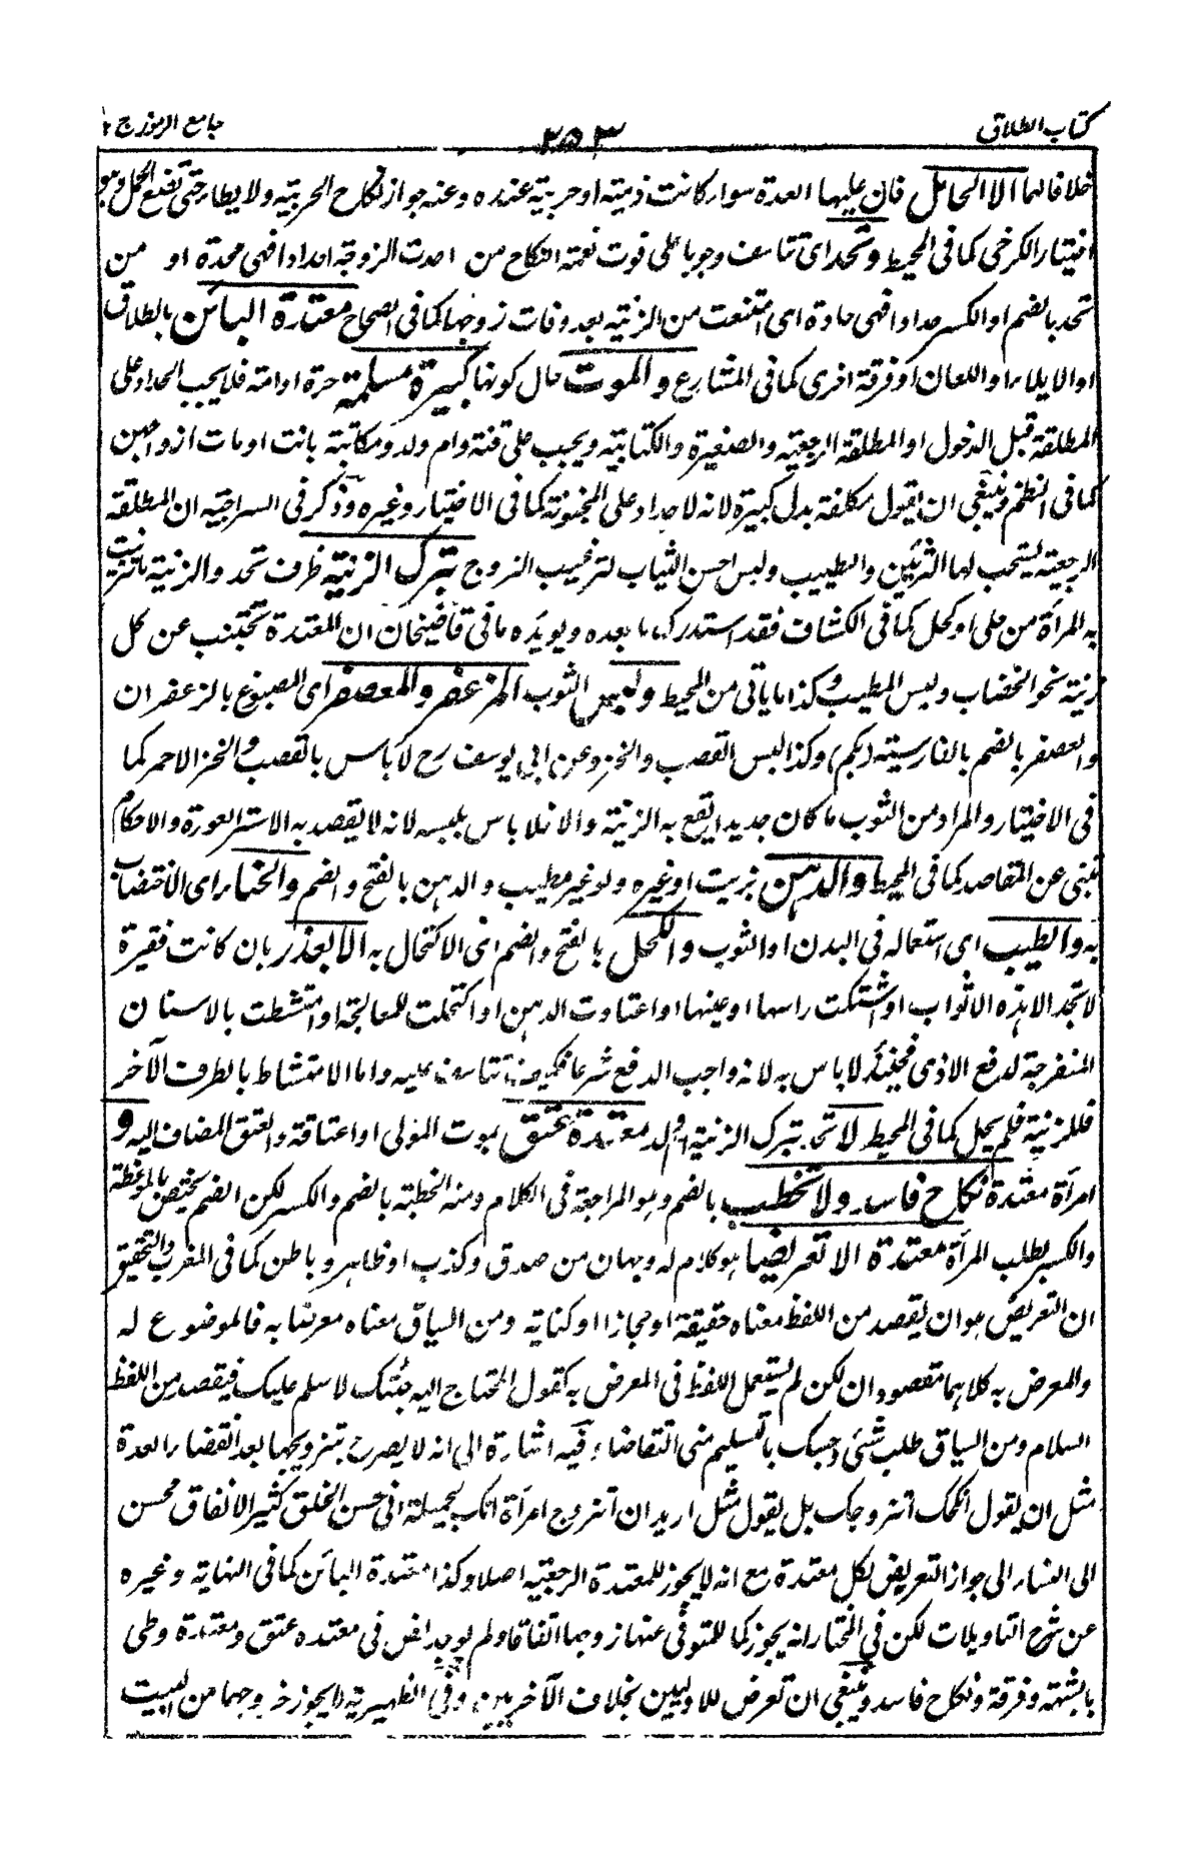 كتاب الطلاق ٢٥٣ جامع الرموز ج ٢
خلافا لهما الا الحامل فان عليها العدة سواء كانت ذمية او حربية عنده وعنه جواز نكاح الحربية ولا يطأ حتى تضع الحمل وهو
اختيار الكرخى كما فى المحيط وتحد اى تتاسف وجوبا على فوت نعمة النكاح من احدت الزوجة احدادا فهى محدة او من
تحد بالضم او الكسر حدادا فهى حادة اى امتنعت من الزينة بعد وفات زوجها كما فى الصحاح معتدة البائن بالطلاق
او الايلاء او اللعان او فرقة اخرى كما فى المشارع والموت حال كونها كبيرة مسلمة حرة او امة فلا يجب الحداد على
المطلقة قبل الدخول او المطلقة الرجعية والصغيرة والكتابية ويجب على قنة وام ولد ومكاتبة بانت او مات ازواجهن
كما فى النظم وينبغى ان يقول مكلفة بدل كبيرة لانه لا حداد على المجنونة كما فى الاختيار وغيره وذكر فى السراجية ان المطلقة
الرجعية يستحب لها التزين والطيب ولبس احسن الثياب لترغيب الزوج بترك الزينة ظرف تحد والزينة ما تزينت
به المرأة من حلى او كحل كما فى الكشاف فقد استدرك ما بعده ويويده ما فى قاضيخان ان المعتدة تجتنب عن كل
زينة نحو الخضاب ولبس المطيب وكذا ما ياتى من المحيط ولبس الثوب المزعفر والمعصفر اى الصبوغ بالزعفران
والعصفر بالضم بالفارسية (بكم) وكذا لبس القصب والخز وعن ابى يوسف رح لا باس بالقصب والخز الاحمر كما
فى الاختيار والمراد من الثوب ما كان جديدا يقع به الزينة والا فلا باس بلبسه لانه لا يقصد به الا ستر العورة والاحكام
تبنى عن المقاصد كما فى المحيط والدهن بزيت او غيره ولو غير مطيب والدهن بالفتح والضم والحناء اى الاختضاب
به والطيب اى استعماله فى البدن او الثوب والكحل بالفتح والضم اى الاكتحال به الا بعذر بان كانت فقيرة
لا تجد الا هذه الاثواب او اشتكت راسها او عينها او اعتادت الدهن او اكتحلت للمعالجة او امتشطت بالاسنان
المنفرجة لدفع الاذى فحينئذ لا باس به لانه واجب الدفع شرعا فكيف تتاسف عليه واما الامتشاط بالطرف الآخر
فللزينة فلم يحل كما فى المحيط لا تحد بترك الزينة ام ولد معتدة عتق بموت المولى او اعتاقه والعتق المضاف اليه و
امرأة معتدة نكاح فاسد ولا تخطب بالضم وهو المراجعة فى الكلام ومنه الخطبة بالضم والكسر لكن الضم يختص بالموعظة
والكسر بطلب المرأة معتدة الا تعريضا هو كلام له وجهان من صدق وكذب او ظاهر وباطن كما فى المغرب والتحقيق
ان التعريض هو ان يقصد من اللفظ معناه حقيقة او مجازا او كناية ومن السياق معناه معرضا به فالموضوع له
والمعرض به كلاهما مقصود وان لكن لم يستعمل اللفظ فى المعرض به كقول المحتاج اليه جئتك لا سلم عليك فيقصد من اللفظ
السلام ومن السياق طلب شئ وحسبك بالتسليم منى التقاضاء وفيه اشارة الى انه لا يصرح بتزويجها بعد انقضاء العدة
مثل ان يقول انكحك اتزوجك بل يقول مثل اريد ان اتزوج امرأة انك لجميلة انى حسن الخلق كثير الانفاق محسن
الى النساء الى جواز التعريض لكل معتدة مع انه لا يجوز للمعتدة الرجعية اصلا وكذا معتدة البائن كما فى النهاية وغيره
عن شرح التاويلات لكن فى المختار انه يجوز كما للمتوفى عنها زوجها اتفاقا ولم يوجد نص فى معتده عتق ومعتدة وطى
بالشبهة وفرقة ونكاح فاسد وينبغى ان تعرض للاوليين بخلاف الآخريين وفى الظهيرية لا يجوز خروجها من البيت